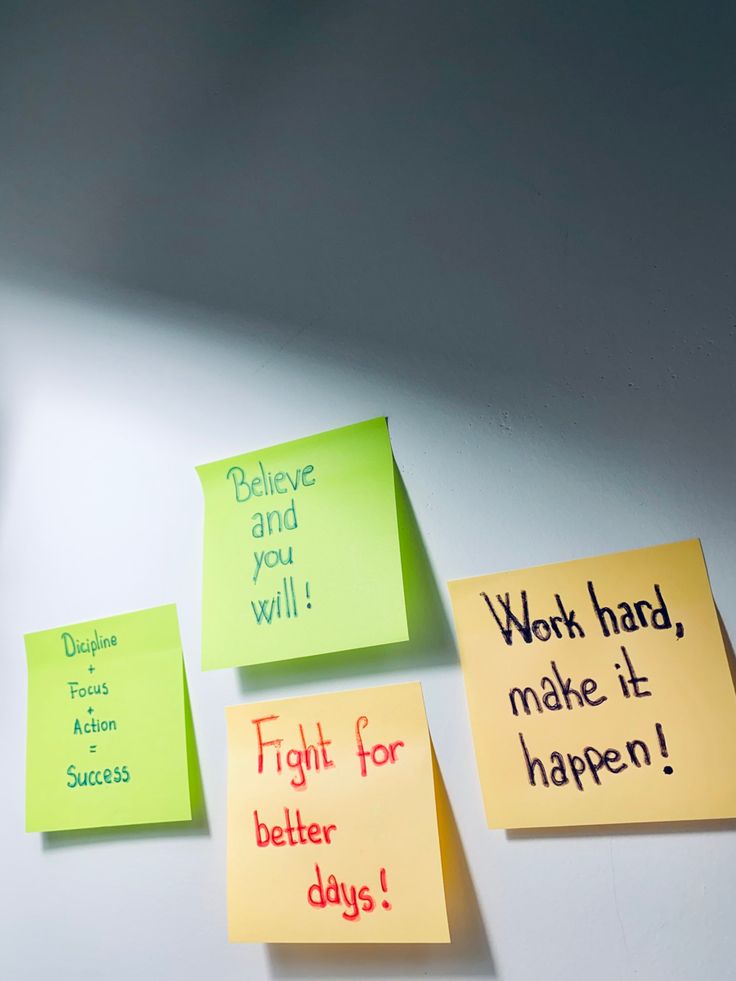 Believe
and
you
will!
Dicipline
+
Focus
+
Action
=
Success
Fight for
better
days!
Work hard,
make it
happen!